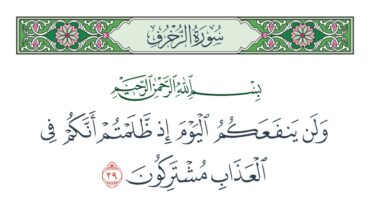 سُورَةُ الزُّخْرُفِ
بِسْمِ ٱللَّهِ ٱلرَّحْمَٰنِ ٱلرَّحِيمِ
وَلَن يَنفَعَكُمُ ٱلْيَوْمَ إِذ ظَّلَمْتُمْ أَنَّكُمْ فِى
ٱلْعَذَابِ مُشْتَرِكُونَ ٣٩